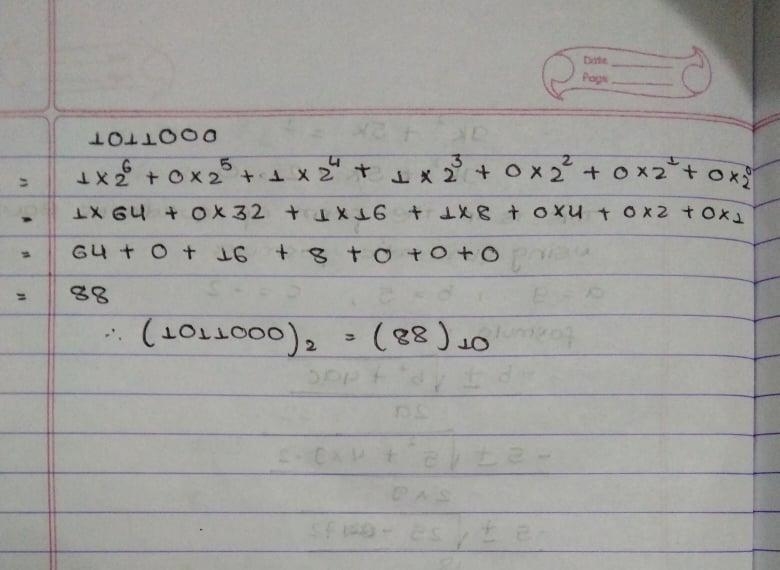 Date
Page
1011000
= 1×2⁶ + 0×2⁵ + 1×2⁴ + 1×2³ + 0×2² + 0×2¹ + 0×2⁰
= 1×64 + 0×32 + 1×16 + 1×8 + 0×4 + 0×2 + 0×1
= 64 + 0 + 16 + 8 + 0 + 0 + 0
= 88
∴ (1011000)₂ = (88)₁₀